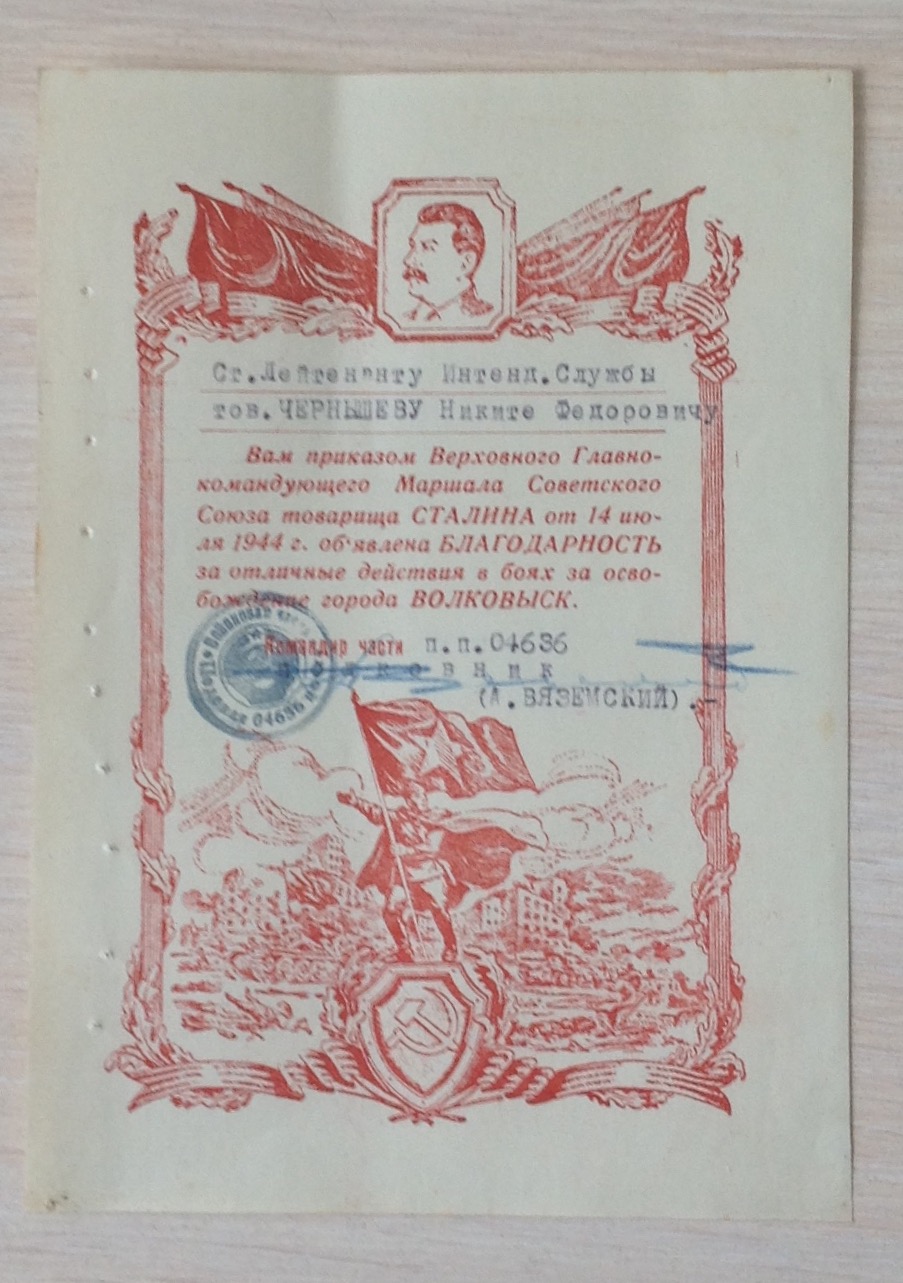 Ст.Лейтенанту Интенд.Службы
тов.ЧЕРНЫШЕВУ Никите Федоровичу
Вам приказом Верховного Главно-
командующего Маршала Советского
Союза товарища СТАЛИНА от 14 ию-
ля 1944 г. об'явлена БЛАГОДАРНОСТЬ
за отличные действия в боях за осво-
бождение города ВОЛКОВЫСК.
Командир части п.п.04636
ковник
(А.ВЯЗЕМСКИЙ).-
Войсковая часть
04636